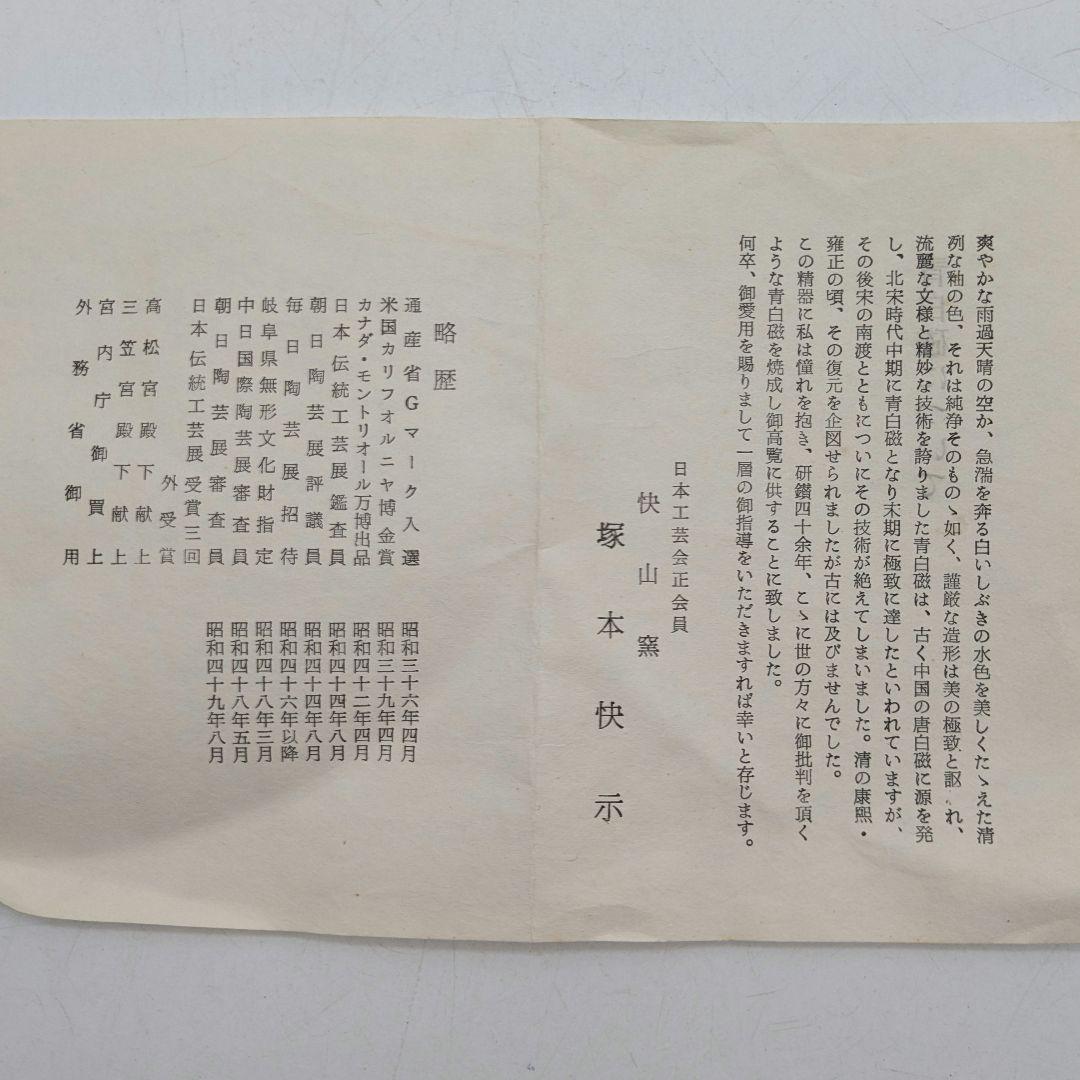 爽やかな雨過天晴の空か、急湍を奔る白いしぶきの水色を美しくたゝえた清
冽な釉の色、それは純浄そのものゝ如く、謹厳な造形は美の極致と謳われ、
流麗な文様と精妙な技術を誇りました青白磁は、古く中国の唐白磁に源を発
し、北宋時代中期に青白磁となり末期に極致に達したといわれていますが、
その後宋の南渡とともについにその技術が絶えてしまいました。清の康熙・
雍正の頃、その復元を企図せられましたが古には及びませんでした。
この精器に私は憧れを抱き、研鑽四十余年、こゝに世の方々に御批判を頂く
ような青白磁を焼成し御高覧に供することに致しました。
何卒、御愛用を賜りまして一層の御指導をいただきますれば幸いと存じます。
日本工芸会正会員
快山窯
塚本快示
略歴
通産省Gマーク入選 昭和三十六年四月
米国カリフォルニヤ博金賞 昭和三十九年四月
カナダ・モントリオール万博出品 昭和四十二年四月
日本伝統工芸展鑑査員 昭和四十四年八月
朝日陶芸展評議員 昭和四十四年八月
毎日陶芸展招待 昭和四十六年以降
岐阜県無形文化財指定 昭和四十八年三月
中日国際陶芸展審査員 昭和四十八年五月
朝日陶芸展審査員 昭和四十九年八月
日本伝統工芸展受賞三回
外受賞
高松宮殿下献上
三笠宮殿下献上
宮内庁御買上
外務省御用